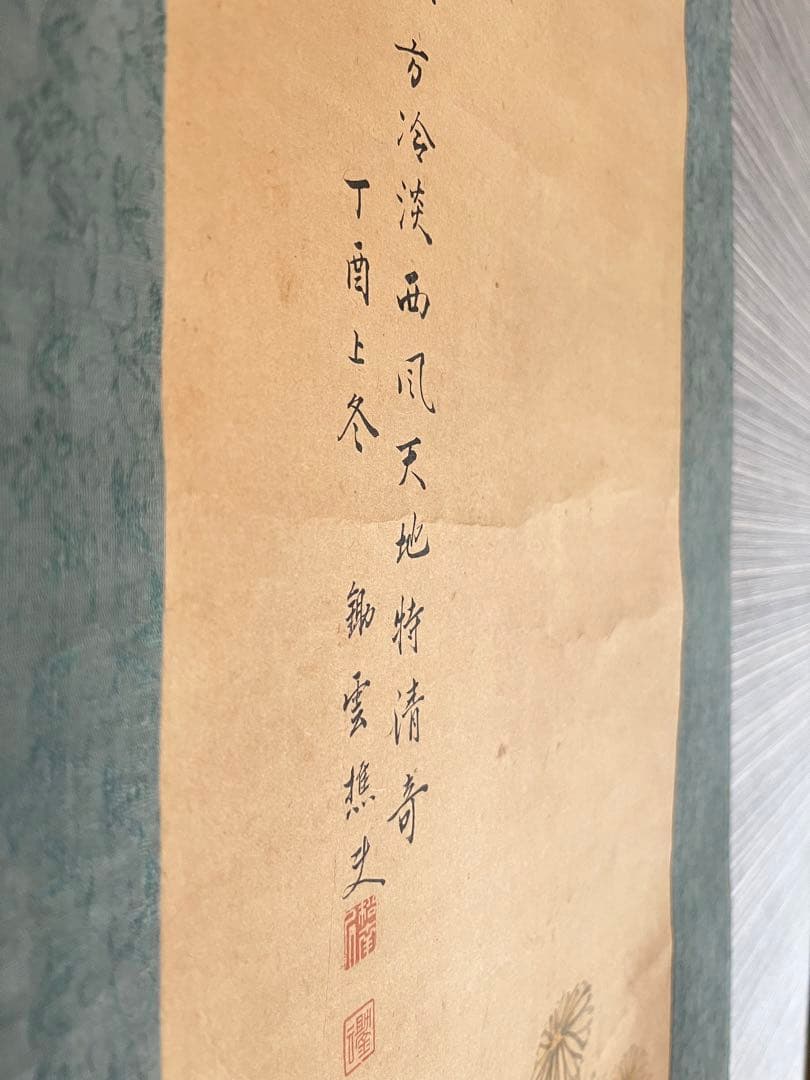 方冷淡西風天地特清奇
丁酉上冬 鋤雲樵史